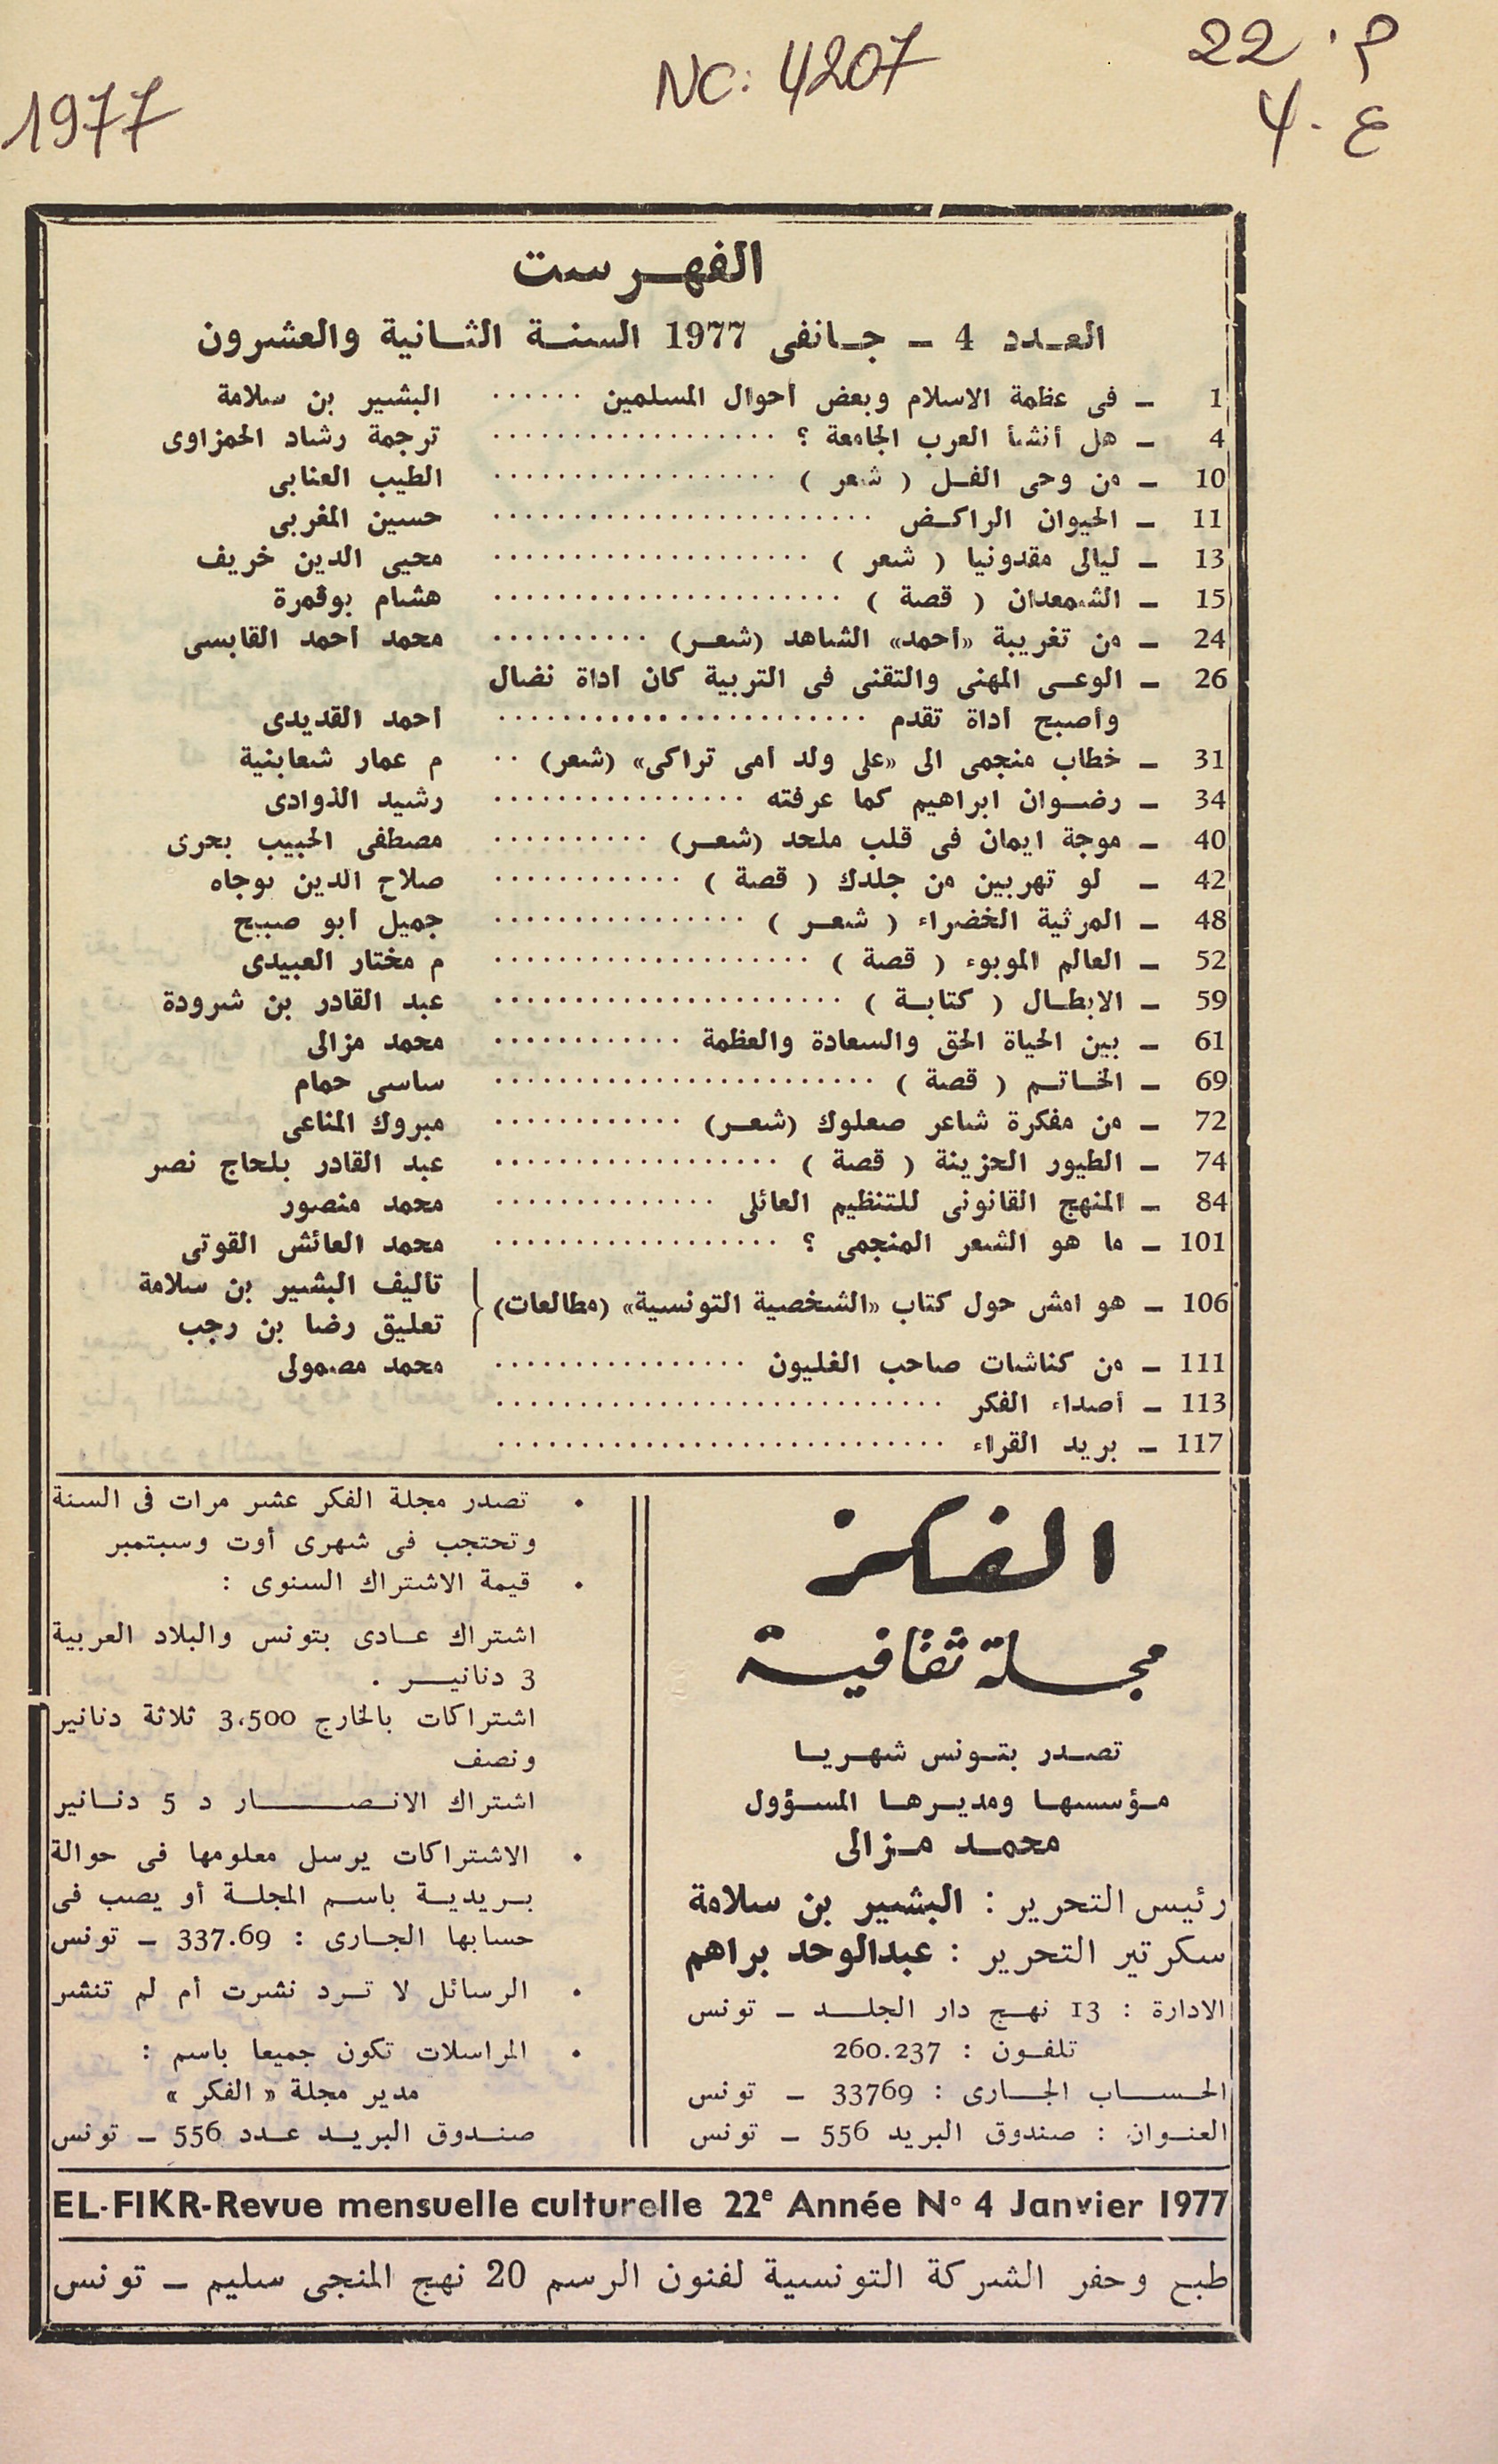 22 م.
4. ع
NC: 4207
1977
الفهرست
العدد 4 ـ جانفى 1977 السنة الثانية والعشرون
1 ـ فى عظمة الاسلام وبعض أحوال المسلمين ...... البشير بن سلامة
4 ـ هل أنشأ العرب الجامعة ؟ .................. ترجمة رشاد الحمزاوى
10 ـ من وحى الفل ( شعر ) .................. الطيب العنابى
11 ـ الحيوان الراكض ........................ حسين المغربى
13 ـ ليالى مقدونيا ( شعر ) .................... محيى الدين خريف
15 ـ الشمعدان ( قصة ) ...................... هشام بوقمرة
24 ـ من تغريبة «أحمد» الشاهد (شعر) .......... محمد أحمد القابسى
26 ـ الوعى المهنى والتقنى فى التربية كان أداة نضال
وأصبح أداة تقدم ....................... أحمد القديدى
31 ـ خطاب منجمى الى «على ولد أمى تراكى» (شعر) .. م عمار شعابنية
34 ـ رضوان ابراهيم كما عرفته ................ رشيد الذوادى
40 ـ موجة ايمان فى قلب ملحد (شعر) .......... مصطفى الحبيب بحرى
42 ـ لو تهربين من جلدك ( قصة ) ............ صلاح الدين بوجاه
48 ـ المرثية الخضراء ( شعر ) ................ جميل أبو صبيح
52 ـ العالم الموبوء ( قصة ) .................... م مختار العبيدى
59 ـ الابطال ( كتابة ) ...................... عبد القادر بن شرودة
61 ـ بين الحياة الحق والسعادة والعظمة ............ محمد مزالى
69 ـ الخاتم ( قصة ) ........................ ساسى حمام
72 ـ من مفكرة شاعر صعلوك (شعر) ............ مبروك المناعى
74 ـ الطيور الحزينة ( قصة ) .................. عبد القادر بلحاج نصر
84 ـ المنهج القانونى للتنظيم العائلى .............. محمد منصور
101 ـ ما هو الشعر المنجمى ؟ .................. محمد العائش القوتى
106 ـ هو امش حول كتاب «الشخصية التونسية» (مطالعات) { تاليف البشير بن سلامة
تعليق رضا بن رجب
111 ـ من كناشات صاحب الغليون ................ محمد مصمولى
113 ـ أصداء الفكر ............................
117 ـ بريد القراء ............................
الفكر
مجلة ثقافية
تصدر بتونس شهريا
مؤسسها ومديرها المسؤول
محمد مزالى
رئيس التحرير : البشير بن سلامة
سكرتير التحرير : عبدالوحد براهم
الادارة : 13 نهج دار الجلد ـ تونس
تلفون : 260.237
الحساب الجارى : 33769 ـ تونس
العنوان : صندوق البريد 556 ـ تونس
• تصدر مجلة الفكر عشر مرات فى السنة
وتحتجب فى شهرى أوت وسبتمبر
• قيمة الاشتراك السنوى :
اشتراك عادى بتونس والبلاد العربية
3 دنانير .
اشتراكات بالخارج 3،500 ثلاثة دنانير
ونصف
اشتراك الانصار د 5 دنانير
• الاشتراكات يرسل معلومها فى حوالة
بريدية باسم المجلة أو يصب فى
حسابها الجارى : 337.69 ـ تونس
• الرسائل لا ترد نشرت أم لم تنشر
• المراسلات تكون جميعا باسم :
مدير مجلة « الفكر »
صندوق البريد عدد 556 ـ تونس
EL-FIKR-Revue mensuelle culturelle 22e Année N° 4 Janvier 1977
طبع وحفر الشركة التونسية لفنون الرسم 20 نهج المنجى سليم ـ تونس